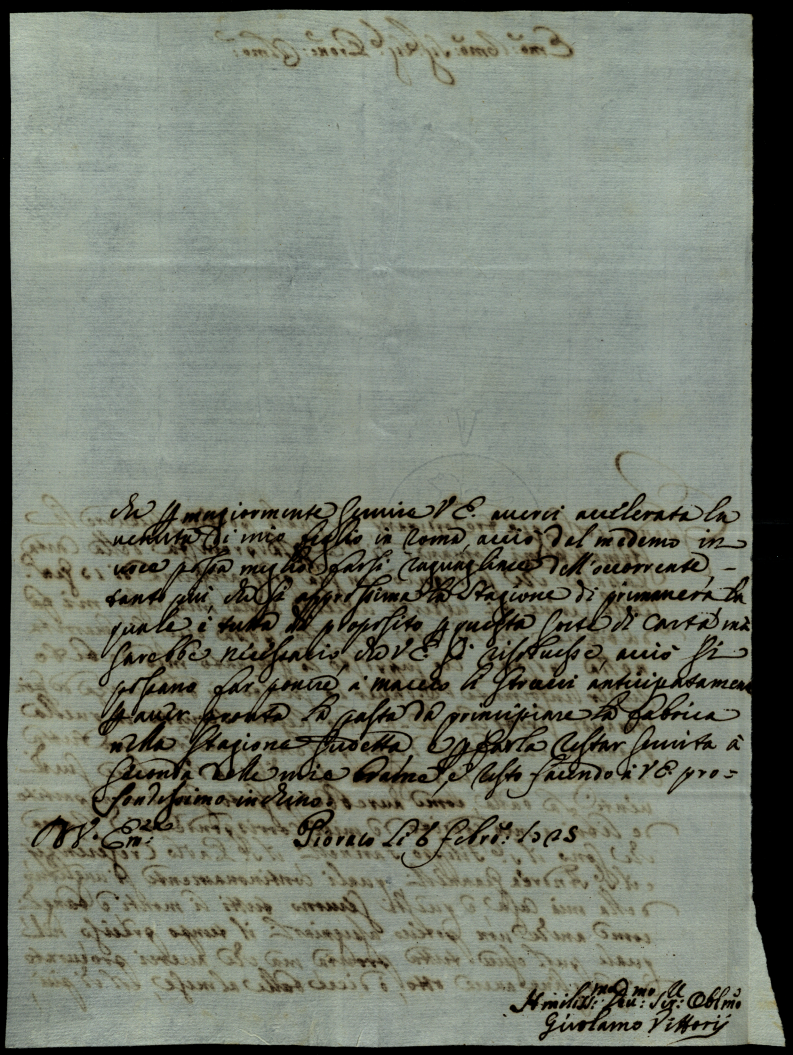 che p magiormente servire V E. averei accelerata la
venuta di mio figlio in Roma, acciò dal medemo in
voce possa meglio farsi raguagliare dell'occorrente,
tanto più che si approssima la Stagione di primavera la
quale è tutta a proposito p questa sorte di carta mà
sarebbe necessario, che V E. si risolvesse, acciò si
possano far ponere à macero li stracci anticipatamente
p aver pronta la pasta da principiare la fabrica
nella stagione sudetta, e p farla restar servita à
seconda delle mie brame, e resto facendo à V E. pro=
fondissimo inchino
D V. Em.za Pioraco Li 6 Febro: 1725
Humiliss.mo Dev.mo Ser.e Oblmo
Girolamo Vittorij